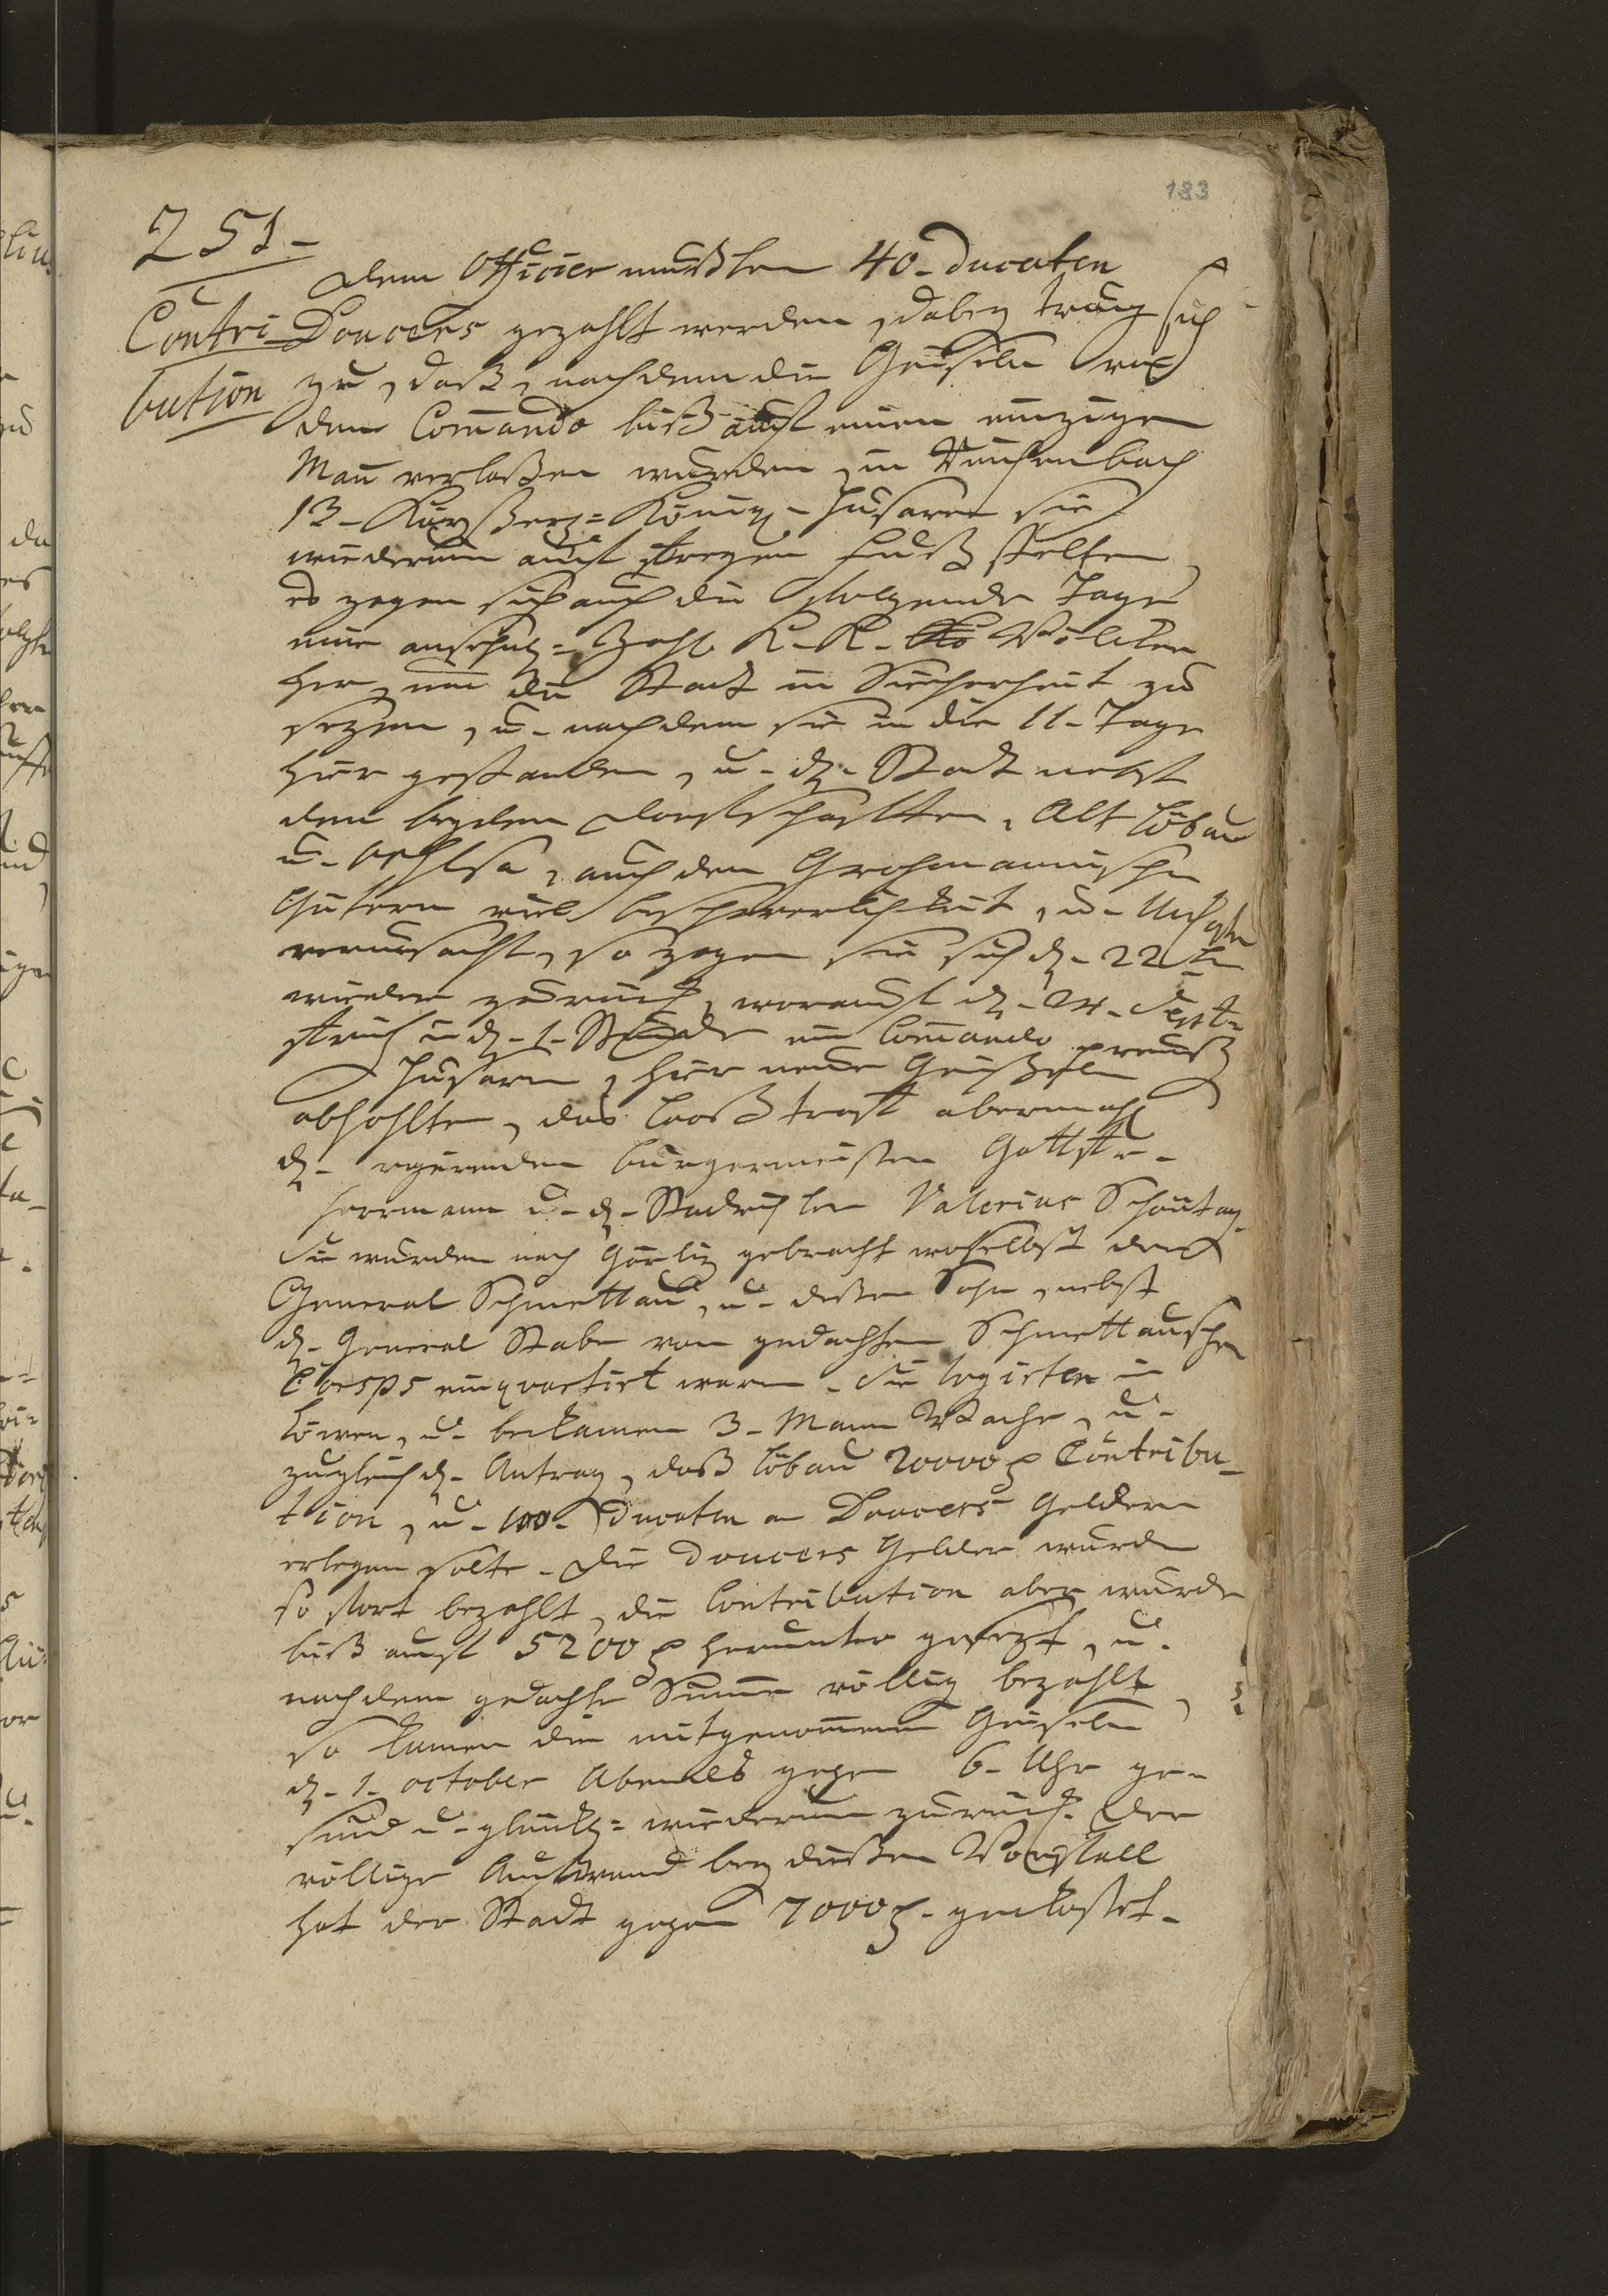 183
251-
Contri
bution
Dem Officier mußten 40-Ducaten
Douceurs gezahlt werden, dabey trug sich
zu, daß, nachdem die Geiseln von
dem Com̄ando biß auf einen einzigen
Man̄ verlaßen wurden, in Reichenbach
13- Kayßerl= Königl- Husaren sie
wiederum auf freyen Fuß stelten,
es zogen sich auch die folgende Tage
eine ansehnl= Zahl K-K- Völcker
her, um die Stadt in Sicherheit zu
sezen, u- nachdem sie in die 11- Tage
hier gestanden, u- d- Stadt nebst
den beyden Dorfschafften, Alt Löbau
u- Oehlsa, auch den Großmannischen
Gütern viel beschwerlichkeit, u-
verursacht, so zogen sie sich d- 22ten
wieder zurück, worauf d- 24- Sept-
früh in d- 1- Stunde ein Com̄ando preuß
Husaren, hier neue Geißeln
abhohlten, das Looß traf abermahl
d- regirenden bürgermeister Gottfr-
Herrmann u- d- Stadrichter Valerius Schöntag-
Sie wurden nach Görliz gebracht woselbst der
General Schmettau, u- deßen Sohn, nebst
d- General Stabe vom gedachten Schmettauschen
Coesps einquartirt waren- Sie logirten im
Löwen, u- bekamen 3- Mann Wache, u-
zugleich d- Antrag, daß Löbau 20000 Contribu-
tion, u- 100- Ducaten an Doucers Geldern
erlegen solte- die Doucers Gelder wurden
so fort bezahlt, die Contribution aber wurde
biß auf 5200 herunter gesezt, u-
nachdem gedachte Sum̄e völlig bezahlt,
so kamen die mitgenom̄enen Geiseln
d- 1- october Abends gegen 6- Uhr ge-
sund u- glückl= wiederum zurück- Der
völlige Aufwand bey dießem Vorfall
hat der Stadt gegen 7000 - gekostet-